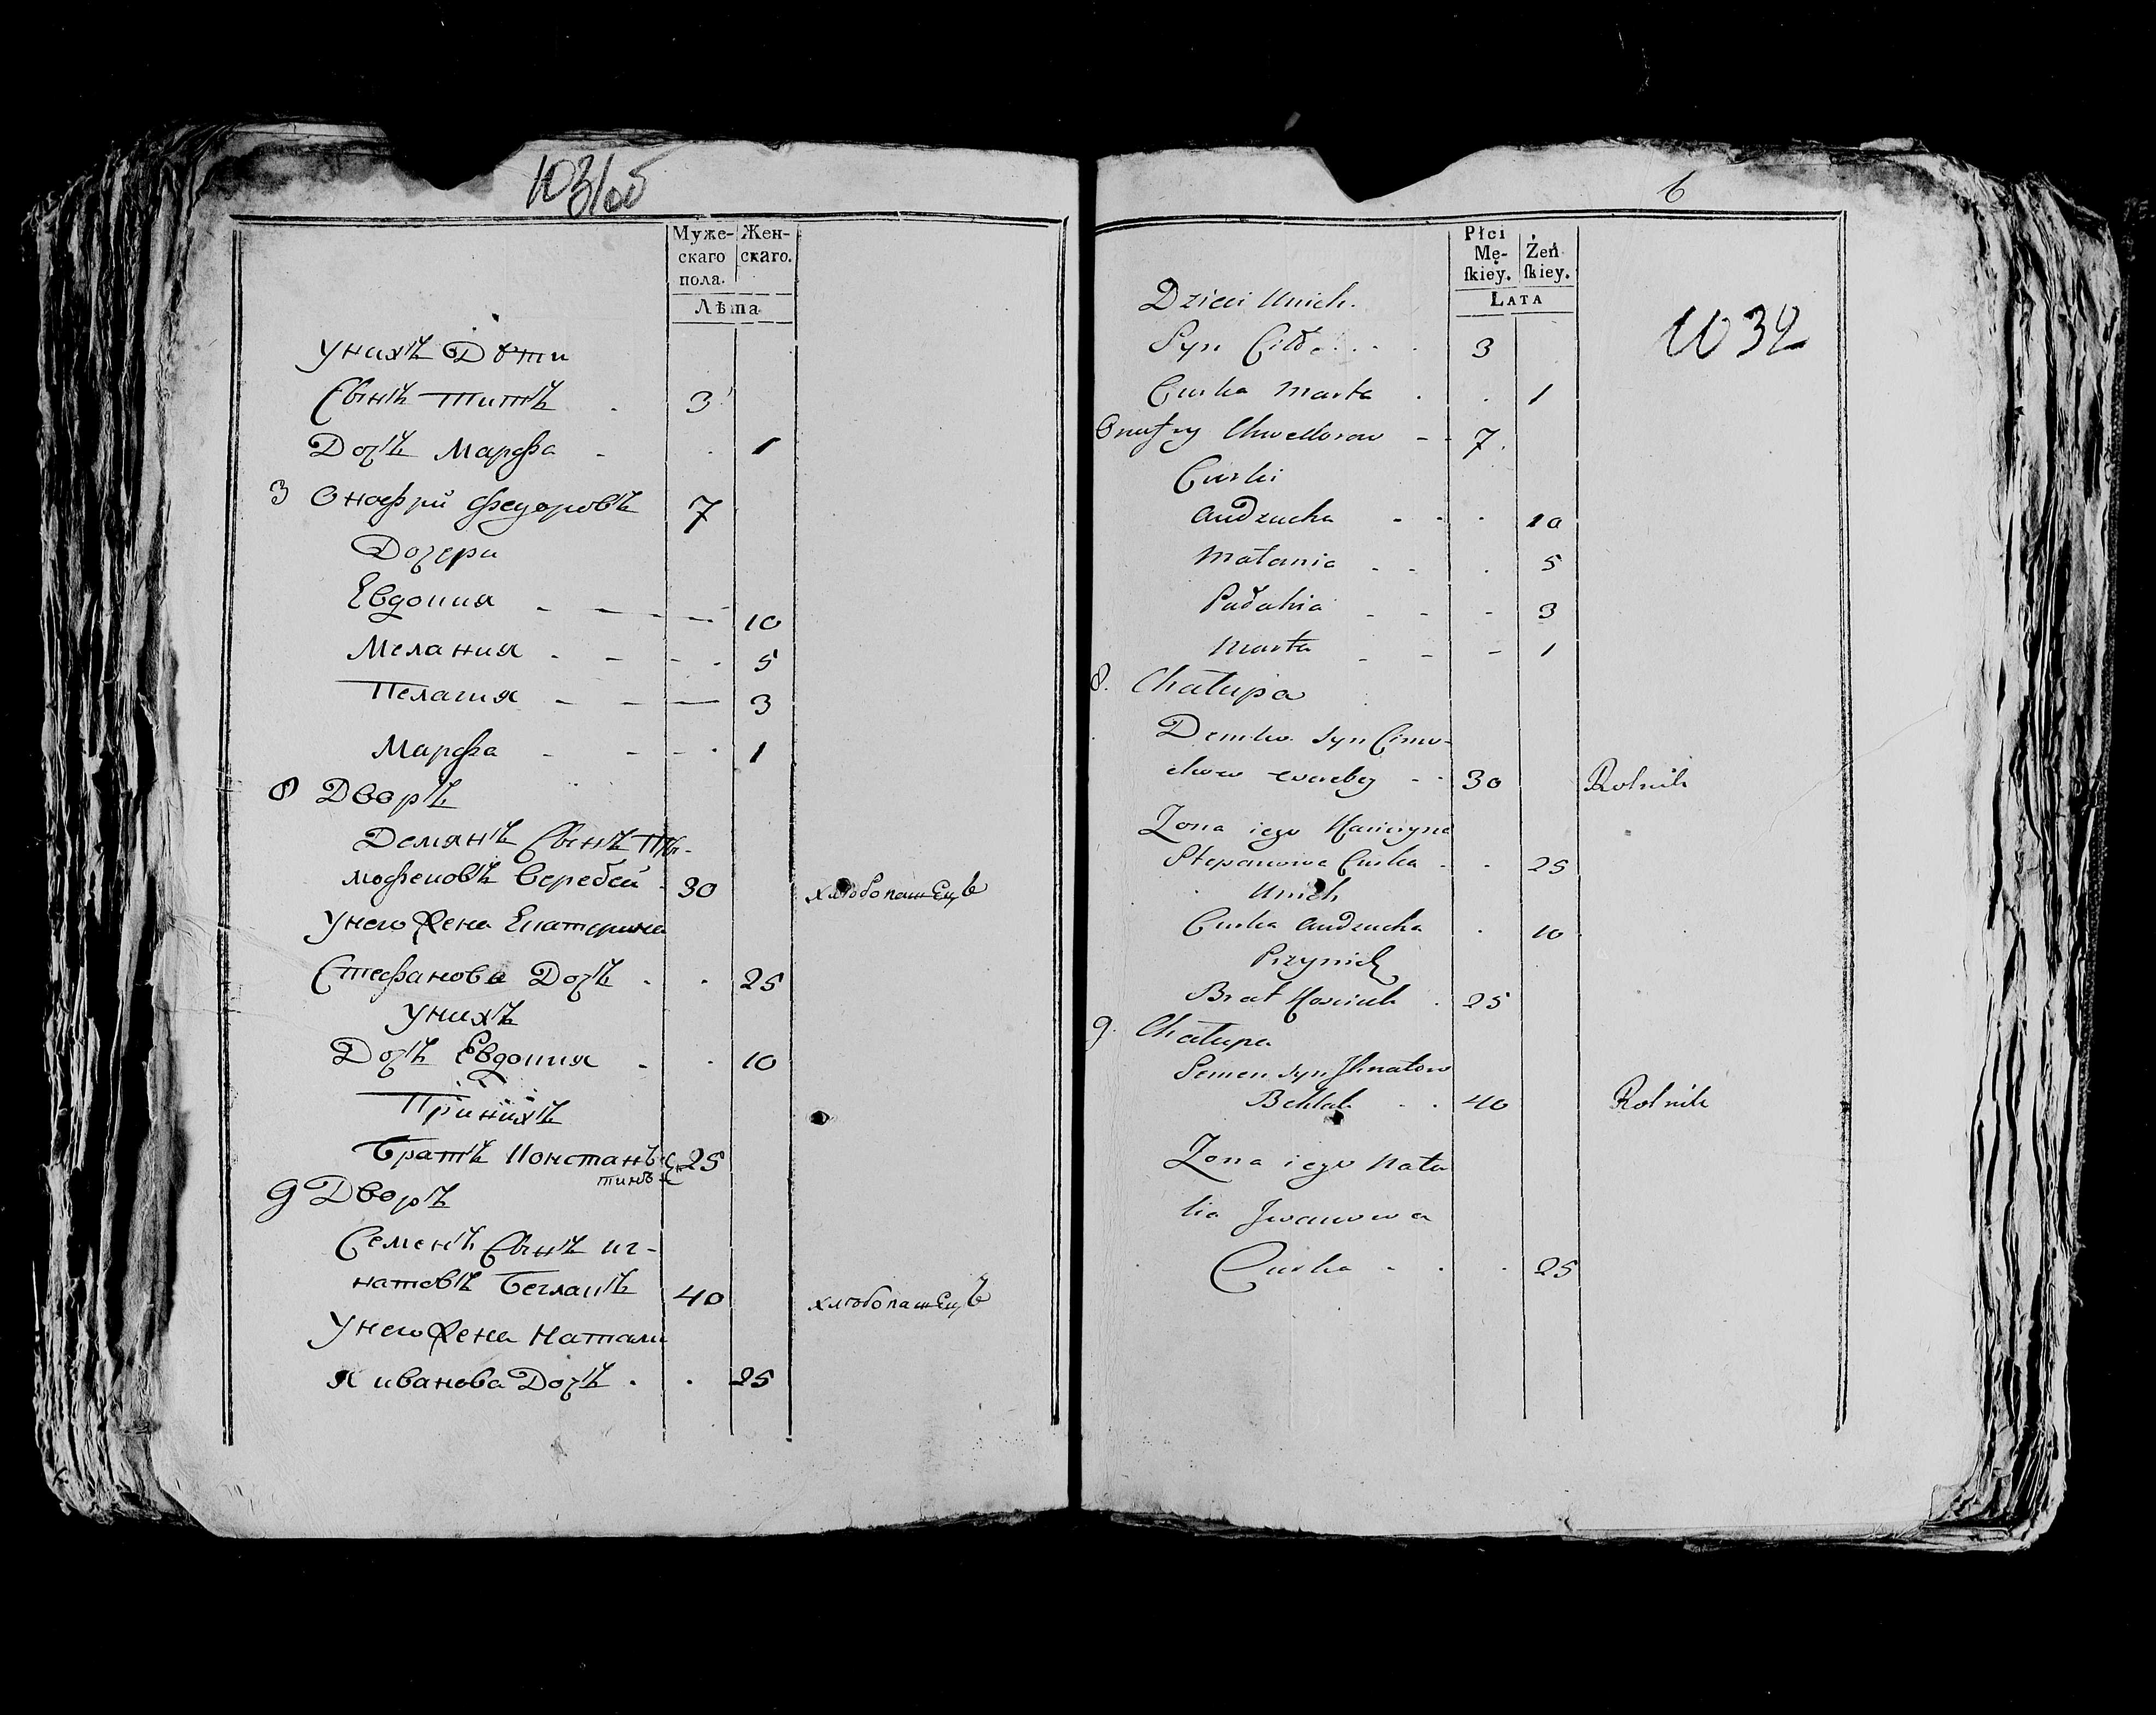 1031об
Муже- Жен-
скаго скаго.
пола.
Лѣта
унихъ Дѣти
Сынъ Титъ 3
Дочь Марфа 1
3 Онофрій Федоровъ 7
Дочери
Евдокия 10
Мелания 5
Пелагия 3
Марфа 1
8 Дворъ
Демянъ Сынъ Ти-
мофеновъ Веребей 30 хлѣбопашецъ
Унего Жена Екатерина
Стефанова Дочь 25
унихъ
Дочь Евдокия 10
Принихъ
Братъ Констанъ 25
тинъ
9 Дворъ
Семенъ Сынъ иг-
натовъ Беглакъ 40 хлѣбопашецъ
Унего Жена Натали
я иванова Дочь 25
6
Płci
Mę- Żeń
ſkiey. ſkiey.
LATA
1032
Dzieci Unich.
Syn Cit 3
Curka Marta 1
Onufry Chwedorow 7
Curki
Audzucha 10
Małania 5
Pałahia 3
Marta 1
8. Chałupa
Demko Syn Cimo-
chow Werebey 30 Rolnik
Zona iego Kacieryna
Stepanowa Curka 25
Unich
Curka Audzucha 10
Przynich
Brat Kosciuk 25
9. Chałupa
Semen Syn Ihnatow
Behlak 40 Rolnik
Zona iego Nata
lia Jwanowa
Curka 25